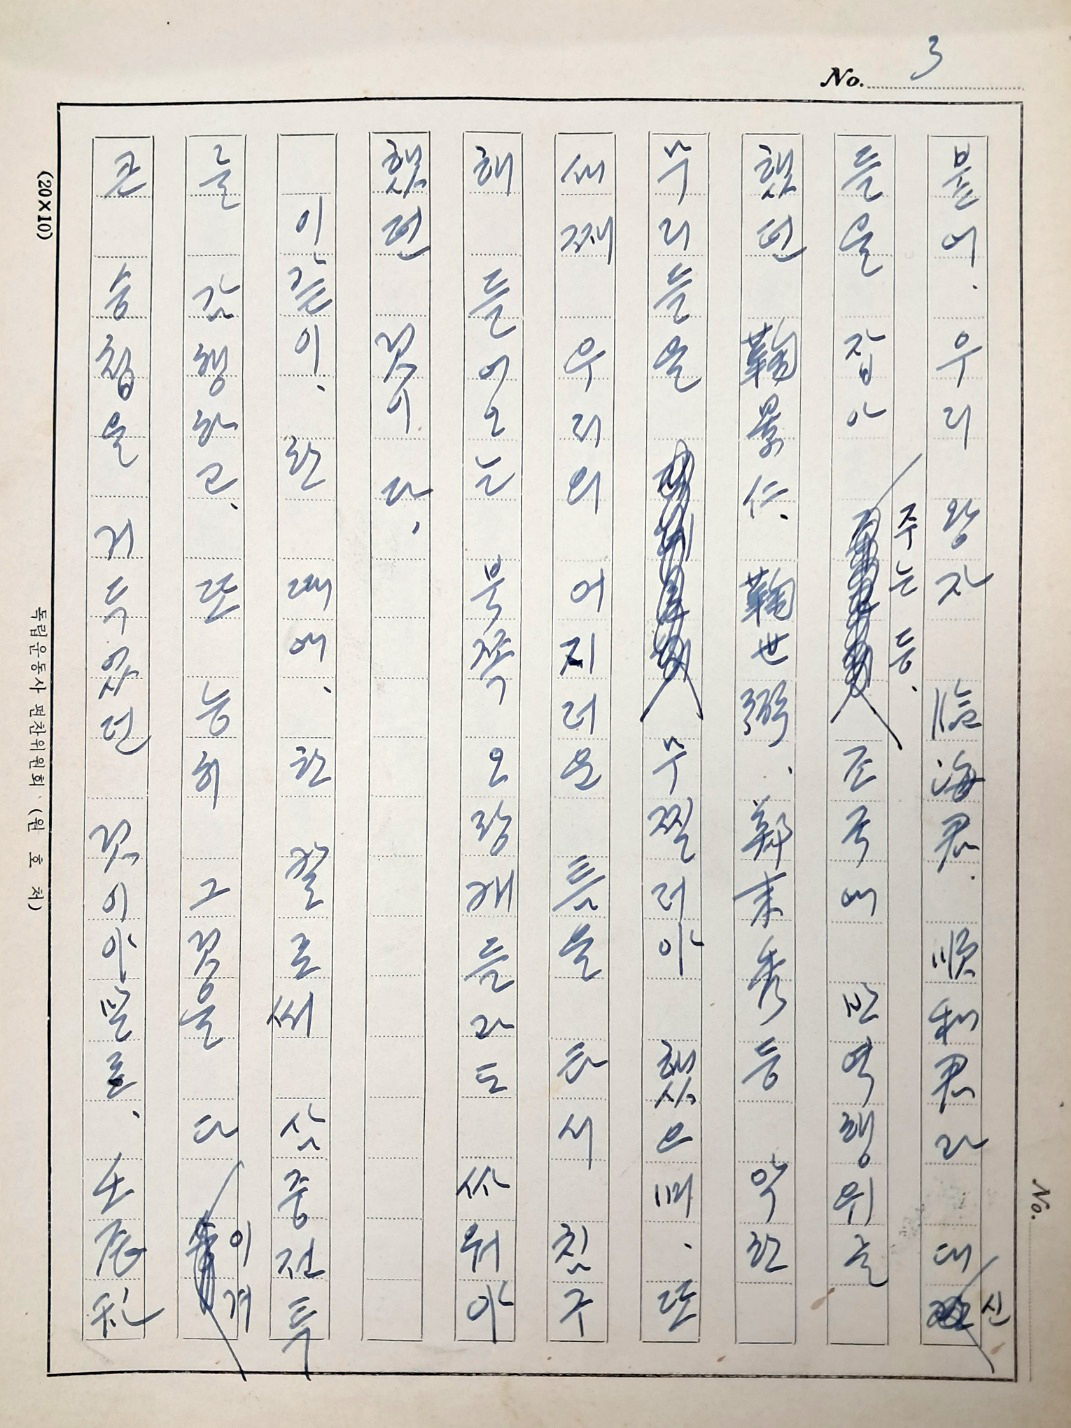 No. 3
붙어. 우리 왕자 臨海君. 順和君과 대신
들을 잡아 주는 등. 조국에 반역행위를
했던 鞠景仁. 鞠世弼. 鄭末秀 등 악한
무리들을 무찔러야 했으며. 또
세째 우리의 어지러운 틈을 타서 침구
해 들어오는 북쪽 오랑캐들과도 싸워야
했던 것이다.
이같이. 한 때에. 한 칼로써 삼중전투
를 감행하고. 또 능히 그것을 다 이겨
큰 승첩을 거두었던 것이야말로. 壬辰란
No.
(20×10)
독립운동사 편찬위원회 (원호처)